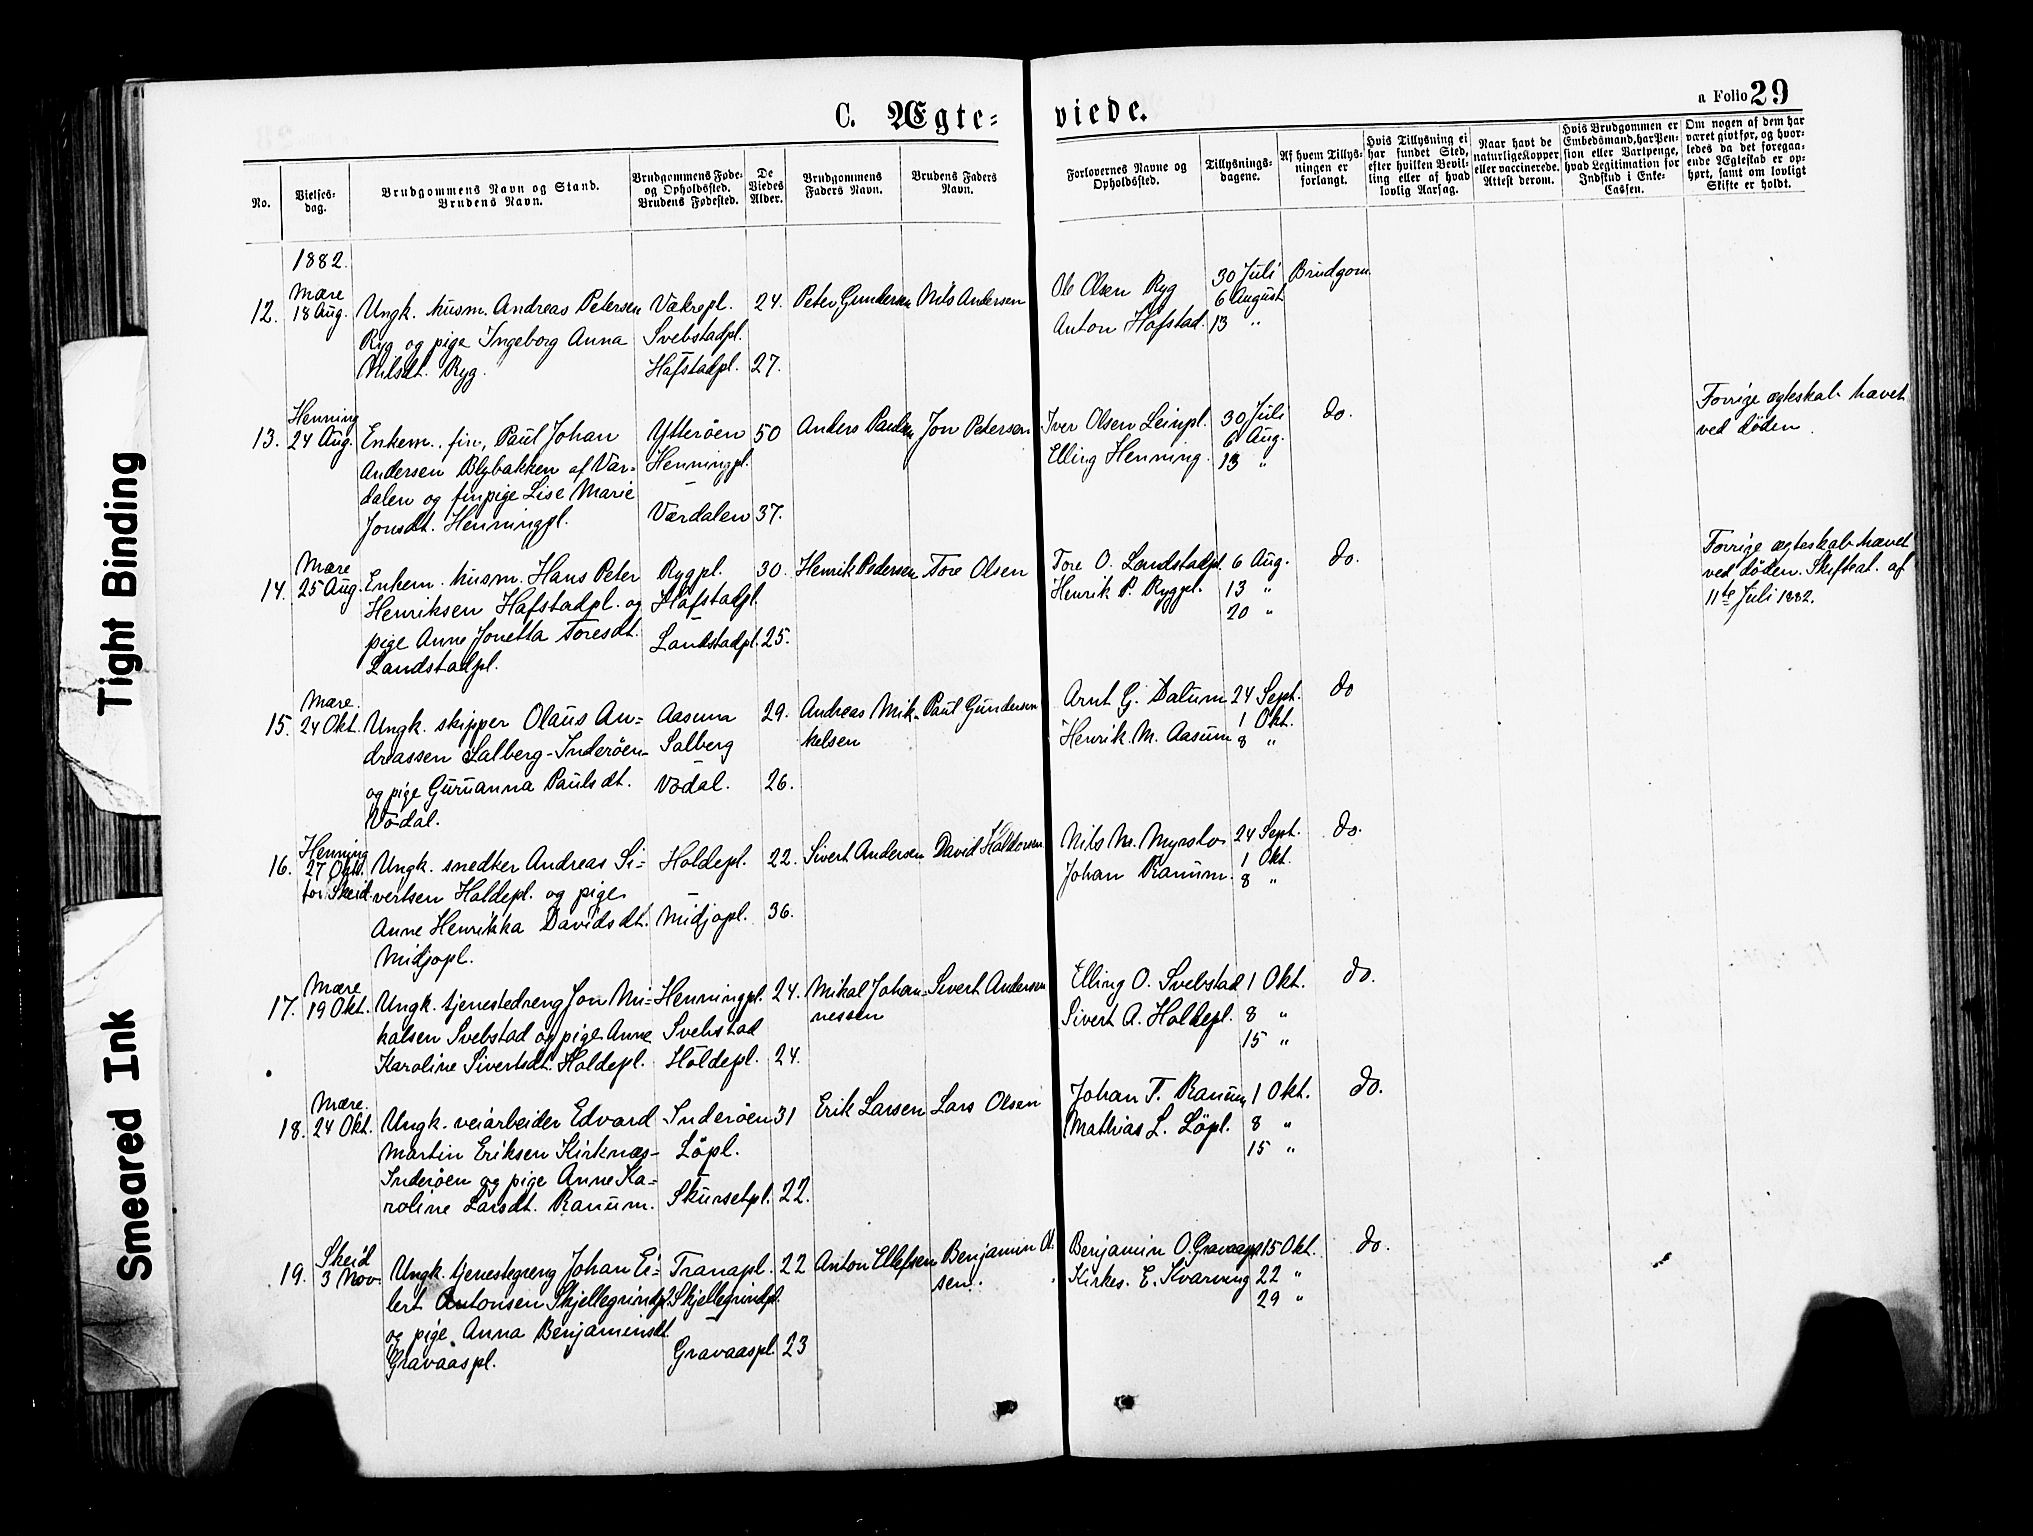 Tight Binding
Smeared Ink
C. Ægte= viede.
a Folio 29
No.
Vielses-
dag.
Brudgommens Navn og Stand.
Brudens Navn.
Brudgommens Føde-
og Opholdssted.
Brudens Fødested.
De
Viedes
Alder.
Brudgommens
Faders Navn.
Brudens Faders
Navn.
Forlovernes Navne og
Opholdssted.
Tillysnings-
dagene.
Af hvem Tillys-
ningen er
forlangt.
Hvis Tillysning ei
har fundet Sted,
efter hvilken Bevil-
ling eller af hvad
lovlig Aarsag.
Naar havt de
naturlige Kopper
eller vaccinerede.
Attest derom.
Hvis Brudgommen er
Embedsmand, har Pen-
sion eller Vartpenge,
hvad Legitimation for
Indskud i Enke-
Cassen.
Om nogen af dem har
været givt før, og hvor-
ledes da det foregaa-
ende Ægtestad er op-
hørt, samt om lovligt
Skifte er holdt.
1882.
12.
Mære
18 Aug.
Ungk. husm. Andreas Petersen
Ryg og pige Ingeborg Anna
Nilsdt. Ryg.
Vakrepl.
Svebstadpl.
Hafstadpl.
24.
27.
Peter Gundersen
Nils Andersen
Ole Olsen Ryg
Anton Hafstad.
30 Juli
6 August
13 "
Brudgom.
13.
Henning
24 Aug.
Enkem., fin, Paul Johan
Andersen Blybakken af Vær-
dalen og finpige Lise Marie
Jonsdt. Henningpl.
Ytterøen
Henningpl.
Værdalen
50
37.
Anders Paulsen
Jon Petersen
Iver Olsen Leinpl.
Elling Henning.
30 Juli
6 Aug.
13 "
do.
Forrige ægteskab hævet
ved døden.
14.
Mære
25 Aug.
Enkem. husm. Hans Peter
Henriksen Hafstadpl. og
pige Anne Jonetta Toresdt.
Landstadpl.
Rygpl.
Hafstadpl.
Landstadpl.
30.
25.
Henrik Pedersen
Tore Olsen
Tore O. Landstadpl.
Henrik P. Rygpl.
6 Aug.
13 "
20 "
do.
Forrige ægteskab hævet
ved døden. Skifteat. af
11te Juli 1882.
15.
Mære.
24 Okt.
Ungk. skipper Olaus An=
dreassen Salberg-Inderøen
og pige Guruanna Paulsdt.
Vodal.
Aasum
Salberg
Vodal.
29.
26.
Andreas Mik-
kelsen
Paul Gundersen
Arnt G. Dalum
Henrik M. Aasum
24 Sept.
1 Okt.
8 "
do
16.
Henning
27 Okt.
for Skeid
Ungk. snedker Andreas Si=
vertsen Holdepl. og pige
Anne Henrikka Davidsdt.
Midjopl.
Holdepl.
Midjopl.
22.
36.
Sivert Andersen
David Haldorsen
Nils M. Myrslo
Johan Ranum.
24 Sept.
1 Okt.
8 "
do.
17.
Mære
19 Okt.
Ungk. tjenestedreng Jon Mi-
kalsen Svebstad og pige Anne
Karoline Sivertsdt. Holdepl.
Henningpl.
Svebstad
Holdepl.
24.
24.
Mikal Johan-
nessen
Sivert Andersen
Elling O. Svebstad
Sivert A. Holdepl.
1 Okt.
8 "
15 "
do.
18.
Mære.
24 Okt.
Ungk. veiarbeider Edvard
Martin Eriksen Kirknæs-
Inderøen og pige Anne Ka=
roline Larsdt. Ranum.
Inderøen
Løpl.
Skursetpl.
31
22.
Erik Larsen
Lars Olsen
Johan T. Ranum
Mathias L. Løpl.
1 Okt.
8 "
15 "
do.
19.
Skeid
3 Nov
Ungk. tjenestegreng Johan Ei=
lert Antonsen Skjellegrindpl.
og pige Anna Benjaminsdt.
Gravaaspl.
Tranapl.
Skjellegrindpl.
Gravaaspl.
22
23
Anton Ellefsen
Benjamin Ol-
sen.
Benjamin O. Gravaaspl
Kirkes. E. Kvarving
15 Okt.
22 "
29 "
do.